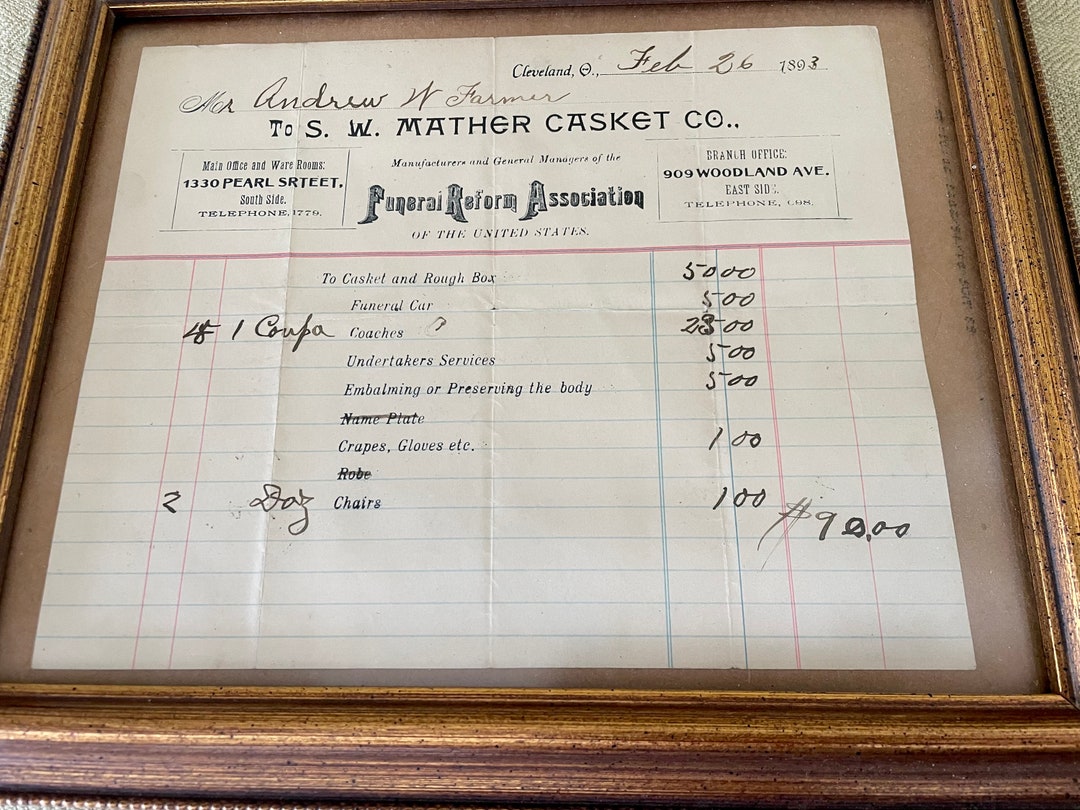 Cleveland, O., Feb 26 1893
Mr Andrew W Farmer
To S. W. MATHER CASKET CO.,
Main Office and Ware Rooms:
1330 PEARL SRTEET.
South Side.
TELEPHONE, 1779.
Manufacturers and General Managers of the
Funeral Reform Association
OF THE UNITED STATES.
BRANCH OFFICE:
909 WOODLAND AVE.
EAST SIDE.
TELEPHONE, 698.
To Casket and Rough Box 50 00
Funeral Car 5 00
1 Coupa Coaches 00
Undertakers Services 5 00
Embalming or Preserving the body 5 00
Name Plate
Crapes, Gloves etc. 1 00
Robe
2 Doz Chairs 1 00
$90.00